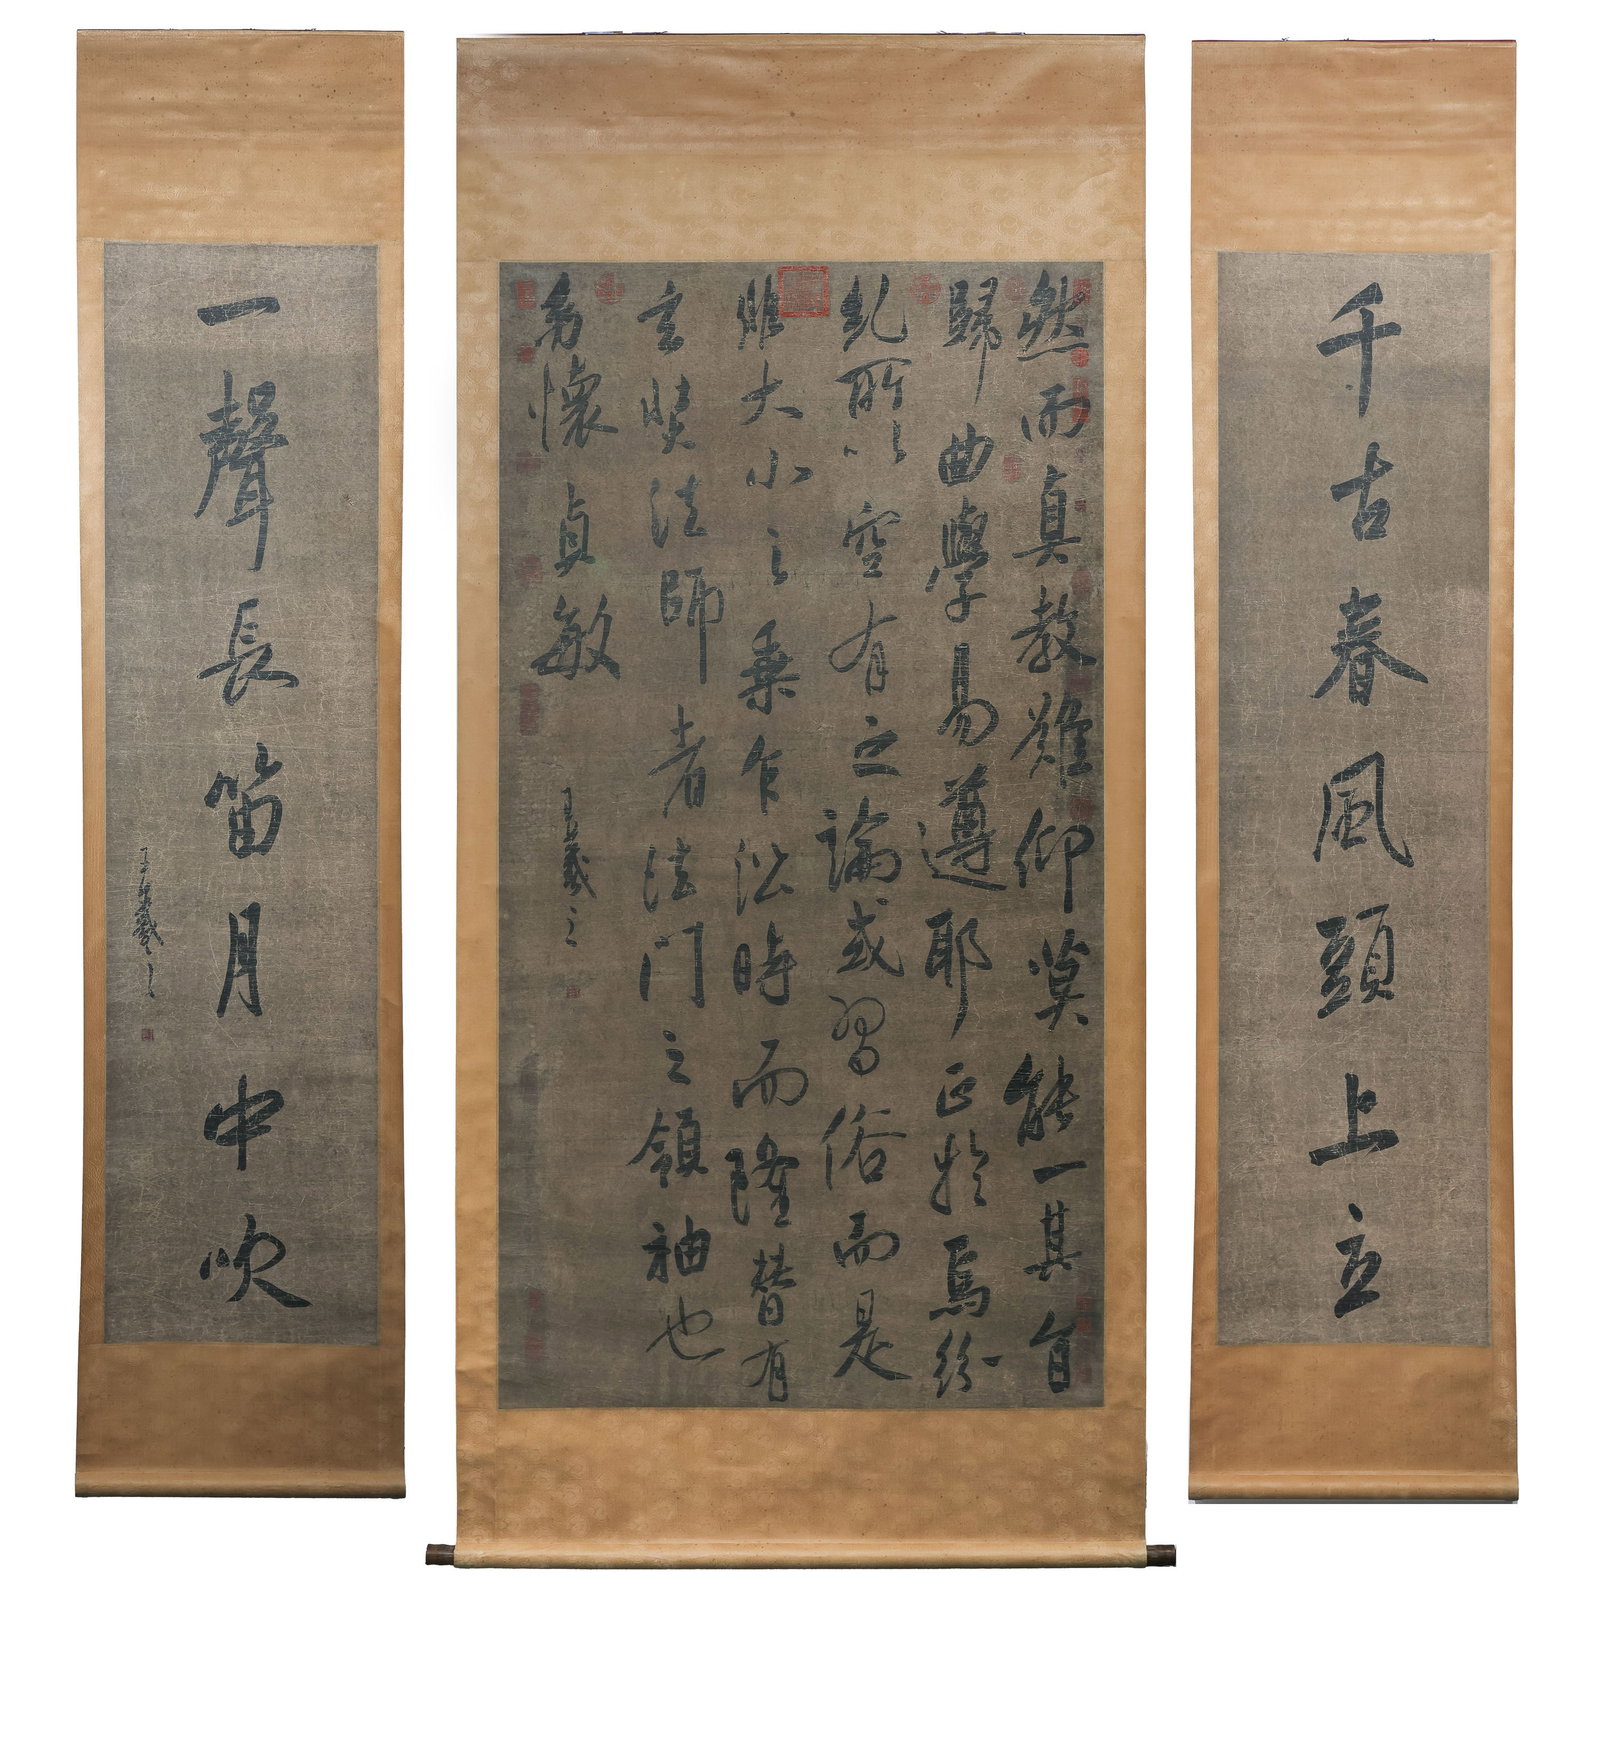 千古春風頭上立
然而真教難仰莫能一其旨
歸曲學易遵耶正於焉紛
糺所以空有之論或習俗而是
非大小之乘乍沿時而隆替有
玄奘法師者法門之領袖也
幼懷貞敏
王羲之
一聲長笛月中吹
王羲之